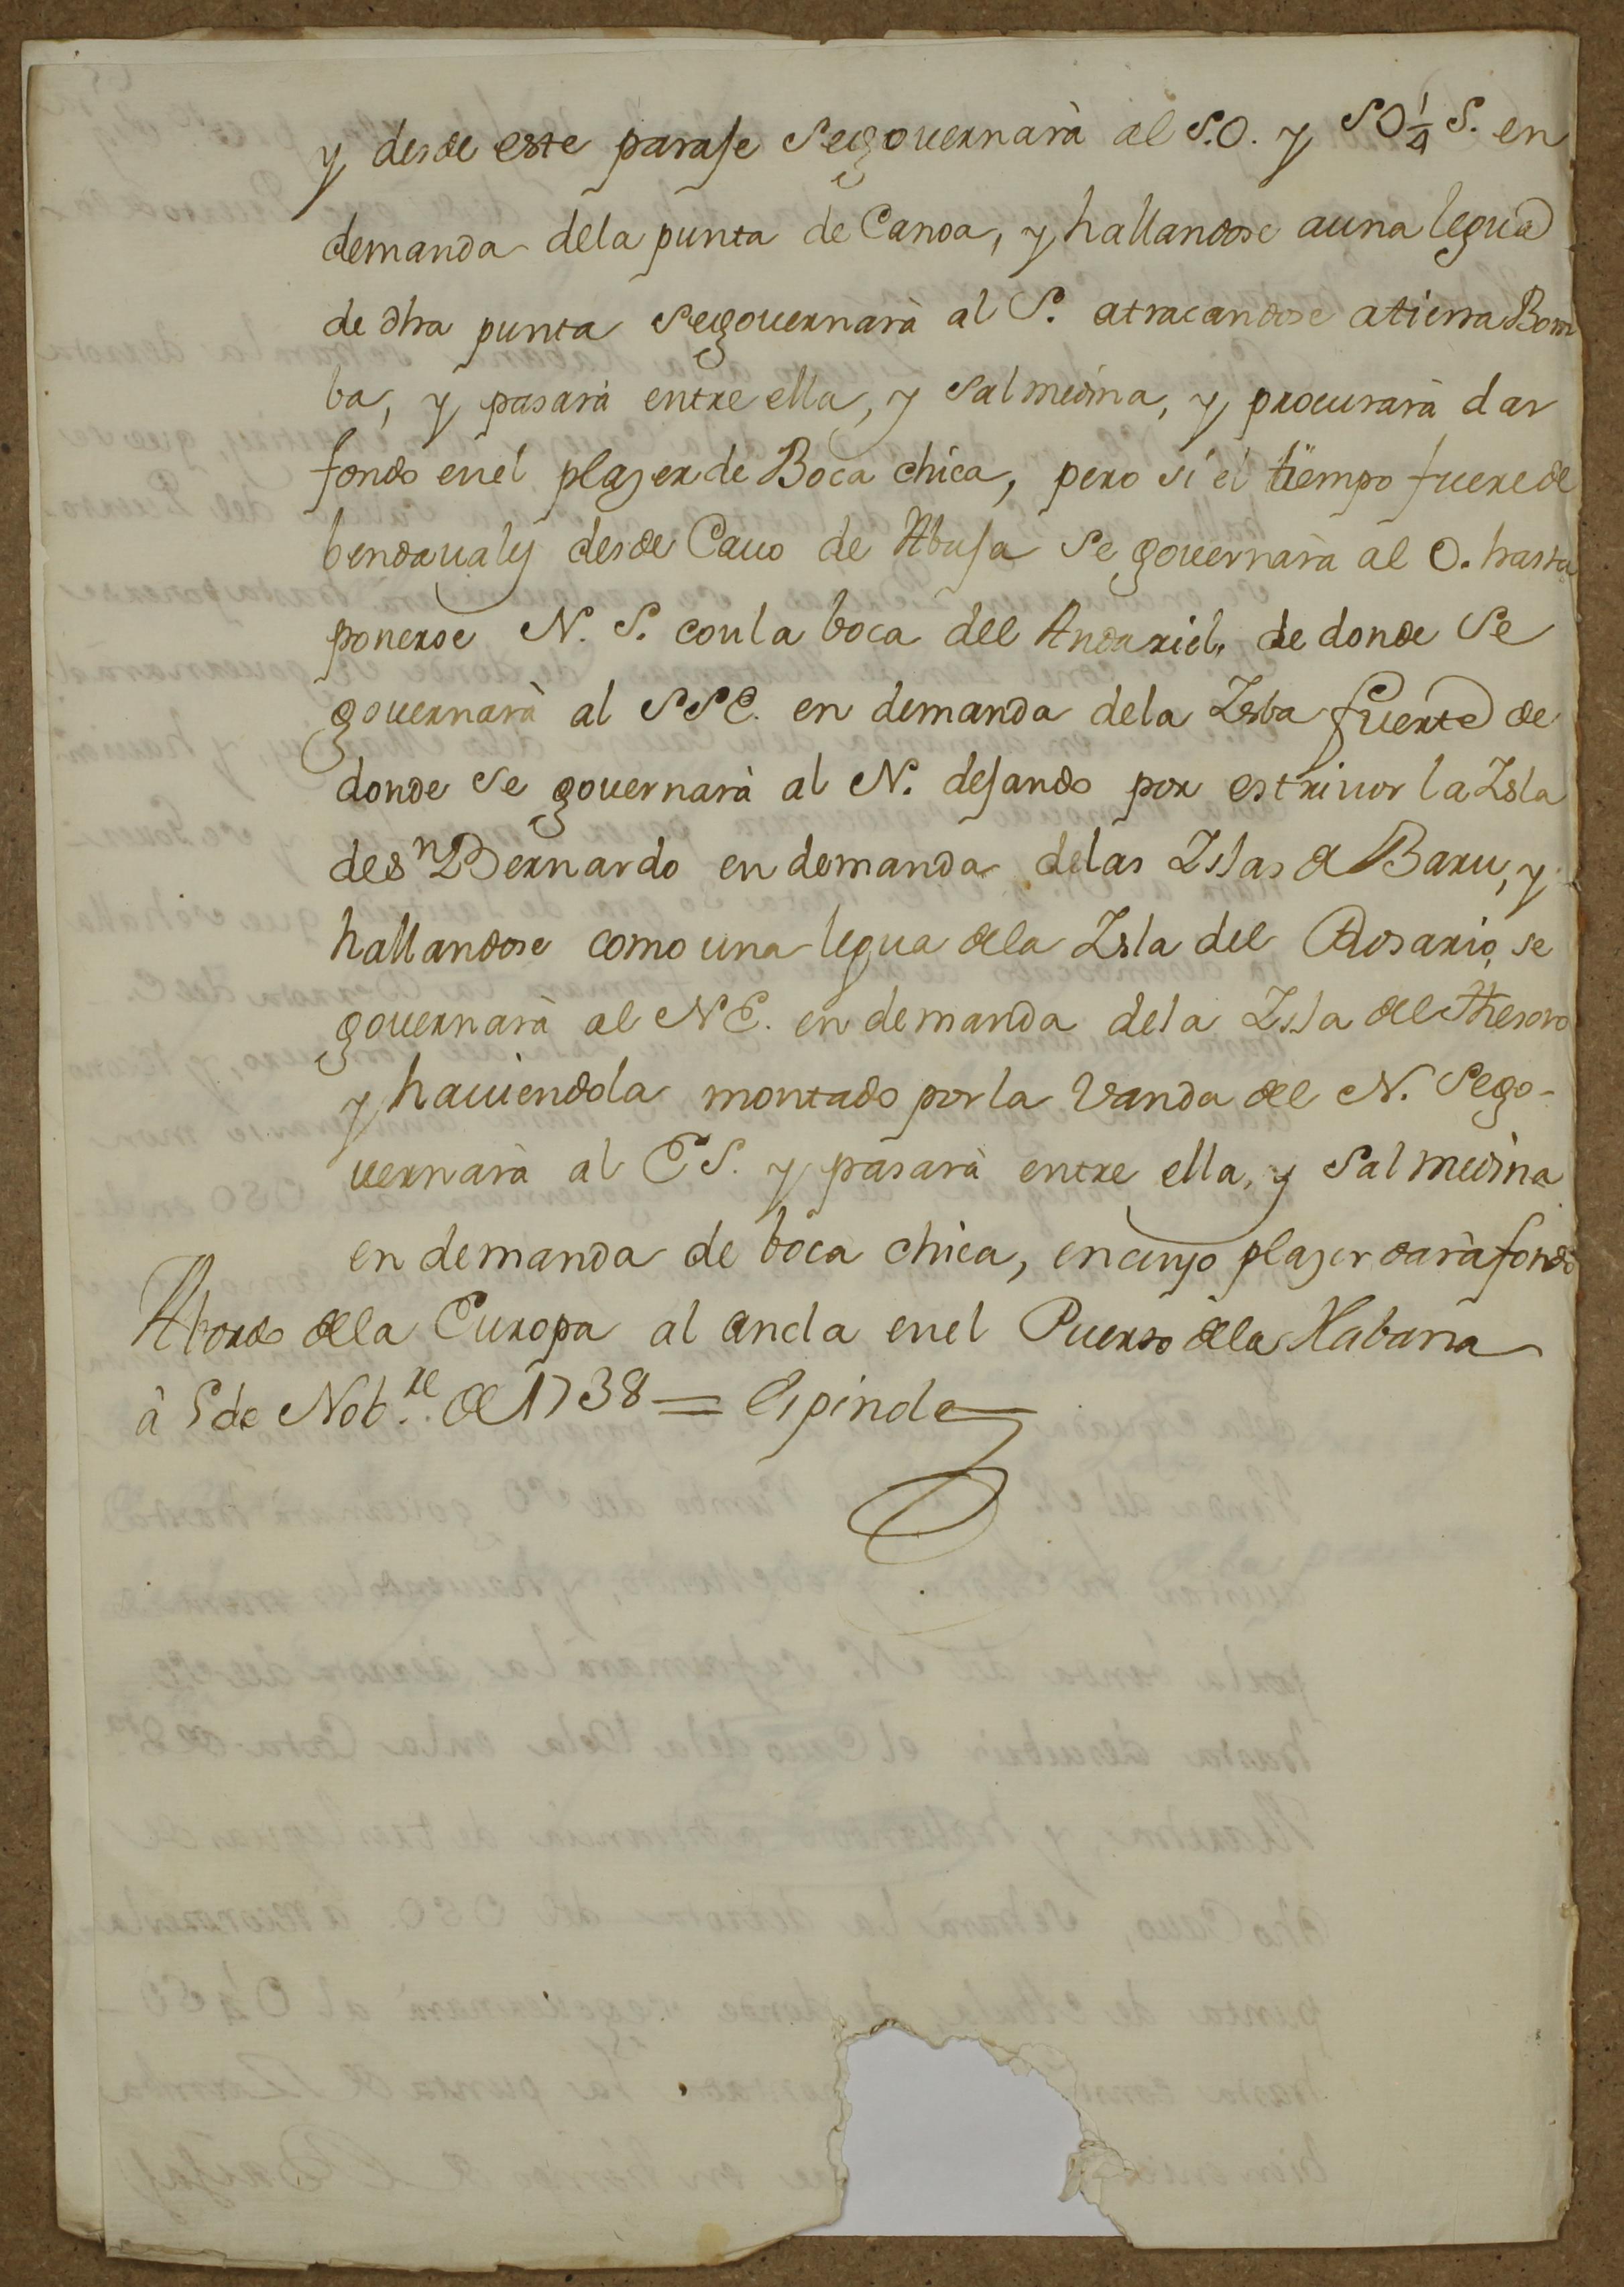 y desde este paraje Segouernarà al S.O. y SO¼ S. en
demanda dela punta de Canoa, y hallandose auna legua
de dha punta Segouernarà al S. atracandose atierra Bom
ba, y pasarà entre ella, y Salmedina, y procurarà dar
fondo enel plazer de Boca chica, pero si el tiempo fuere de
bendauales desde Cauo de Abuja Se gouernarà al O. hasta
ponerse N. S. con la boca del Andariel, de donde Se
gouernarà al SSE. en demanda dela Isla fuerte de
donde Se gouernarà al N. dejando por estriuor la Isla
de Sn Bernardo en demanda delas Islas de Baru, y
hallandose como una legua dela Isla del Rosario, se
gouernarà al NE. en demanda dela Isla del Thesoro
y hauiendola montado por la Vanda del N. Sego-
uernarà al ES. y pasarà entre ella, y Salmedina
en demanda de boca chica, en cuyo plazer darà fondo
Abordo dela Europa al ancla enel Puerto dela Habana
à 5 de Nob.re de 1738 = Espinola